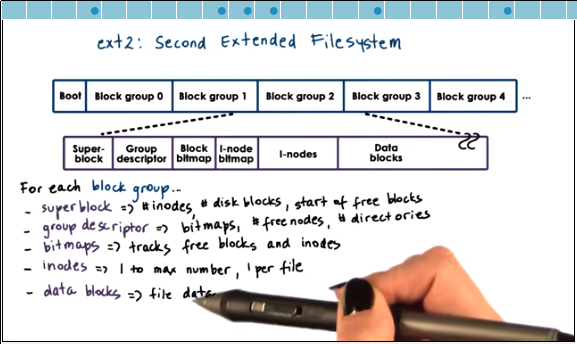 ext2: Second Extended Filesystem
Boot Block group 0 Block group 1 Block group 2 Block group 3 Block group 4 ...
Super-block Group descriptor Block bitmap I-node bitmap I-nodes Data blocks
For each block group...
- superblock => # inodes, # disk blocks, start of free blocks
- group descriptor => bitmaps, # free nodes, # directories
- bitmaps => tracks free blocks and inodes
- inodes => 1 to max number, 1 per file
- data blocks => file data